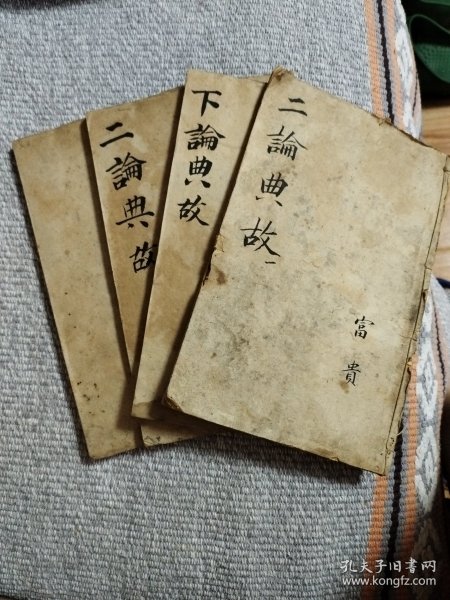 二論典故
下論典故
二論典故一
富貴
孔夫子旧书网
www.kongfz.com